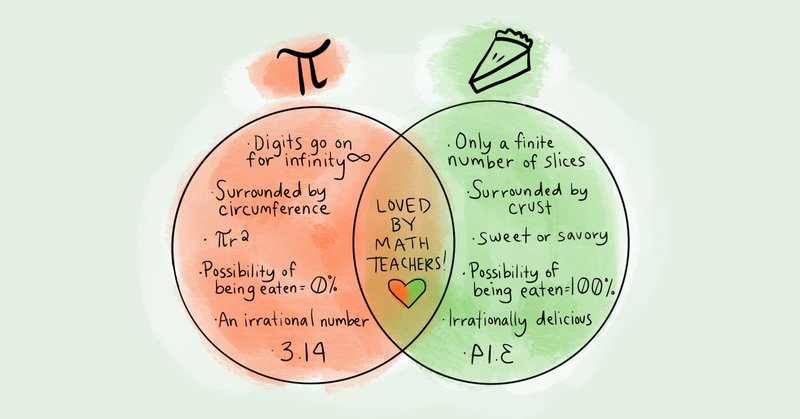 π
· Digits go on
for infinity ∞
· Surrounded by
circumference
· πr²
· Possibility of
being eaten = 0%
· An irrational number
· 3.14
LOVED
BY
MATH
TEACHERS!
· Only a finite
number of slices
· Surrounded by
crust
· sweet or savory
· Possibility of
being eaten=100%
· Irrationally delicious
· PI.E